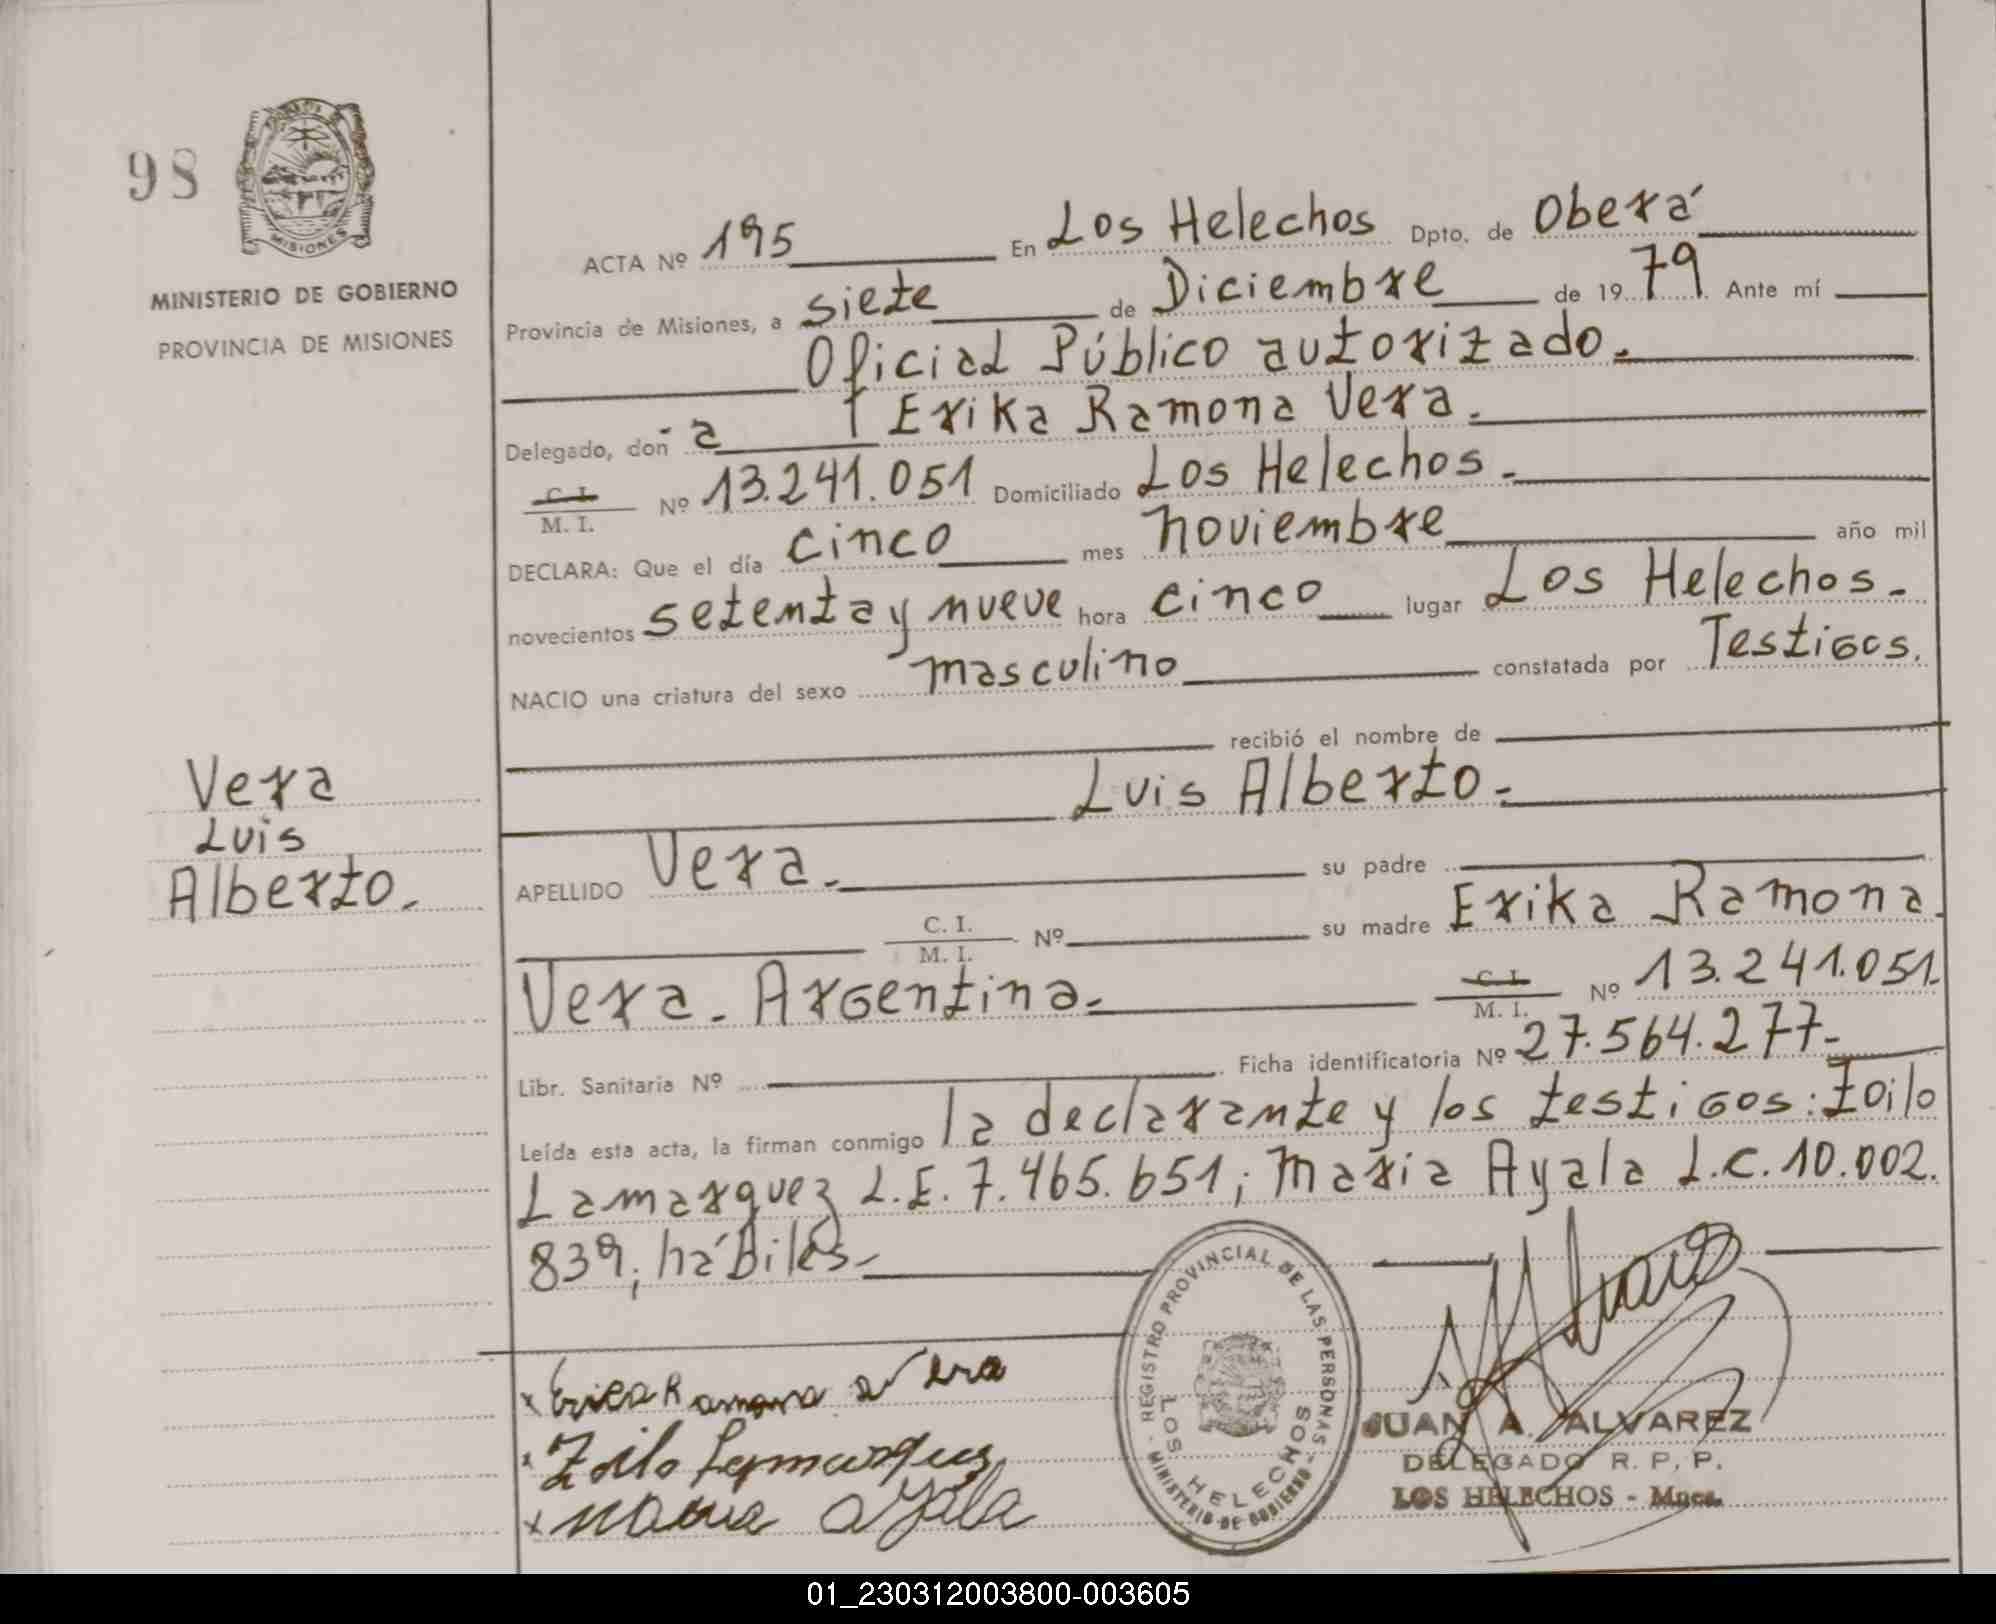 98
MISIONES
MINISTERIO DE GOBIERNO
PROVINCIA DE MISIONES
Vera
Luis
Alberto.
ACTA Nº 195 En Los Helechos Dpto. de Oberá
Provincia de Misiones, a siete de Diciembre de 1979 Ante mí
Oficial Público autorizado.
Delegado, don a Erika Ramona Vera.
C. I.
M. I. Nº 13.241.051 Domiciliado Los Helechos.
DECLARA: Que el día cinco mes noviembre año mil
novecientos setenta y nueve hora cinco lugar Los Helechos.
NACIO una criatura del sexo masculino constatada por Testigos.
recibió el nombre de
Luis Alberto.
APELLIDO Vera. su padre
C. I.
M. I. Nº su madre Erika Ramona
Vera. Argentina. C. I.
M. I. Nº 13.241.051.
Libr. Sanitaria Nº Ficha identificatoria Nº 27.564.277-
Leída esta acta, la firman conmigo la declarante y los testigos: Zoilo
Lamarquez L.E. 7.465.651; Maria Ayala L.C. 10.002.
839; hábiles.
x Erica Ramona Vera
x Zoilo Lamarquez
x Maria Ayala
REGISTRO PROVINCIAL DE LAS PERSONAS
LOS HELECHOS
MINISTERIO DE GOBIERNO
JUAN A. ALVAREZ
DELEGADO R. P. P.
LOS HELECHOS - Mnes.
01_230312003800-003605